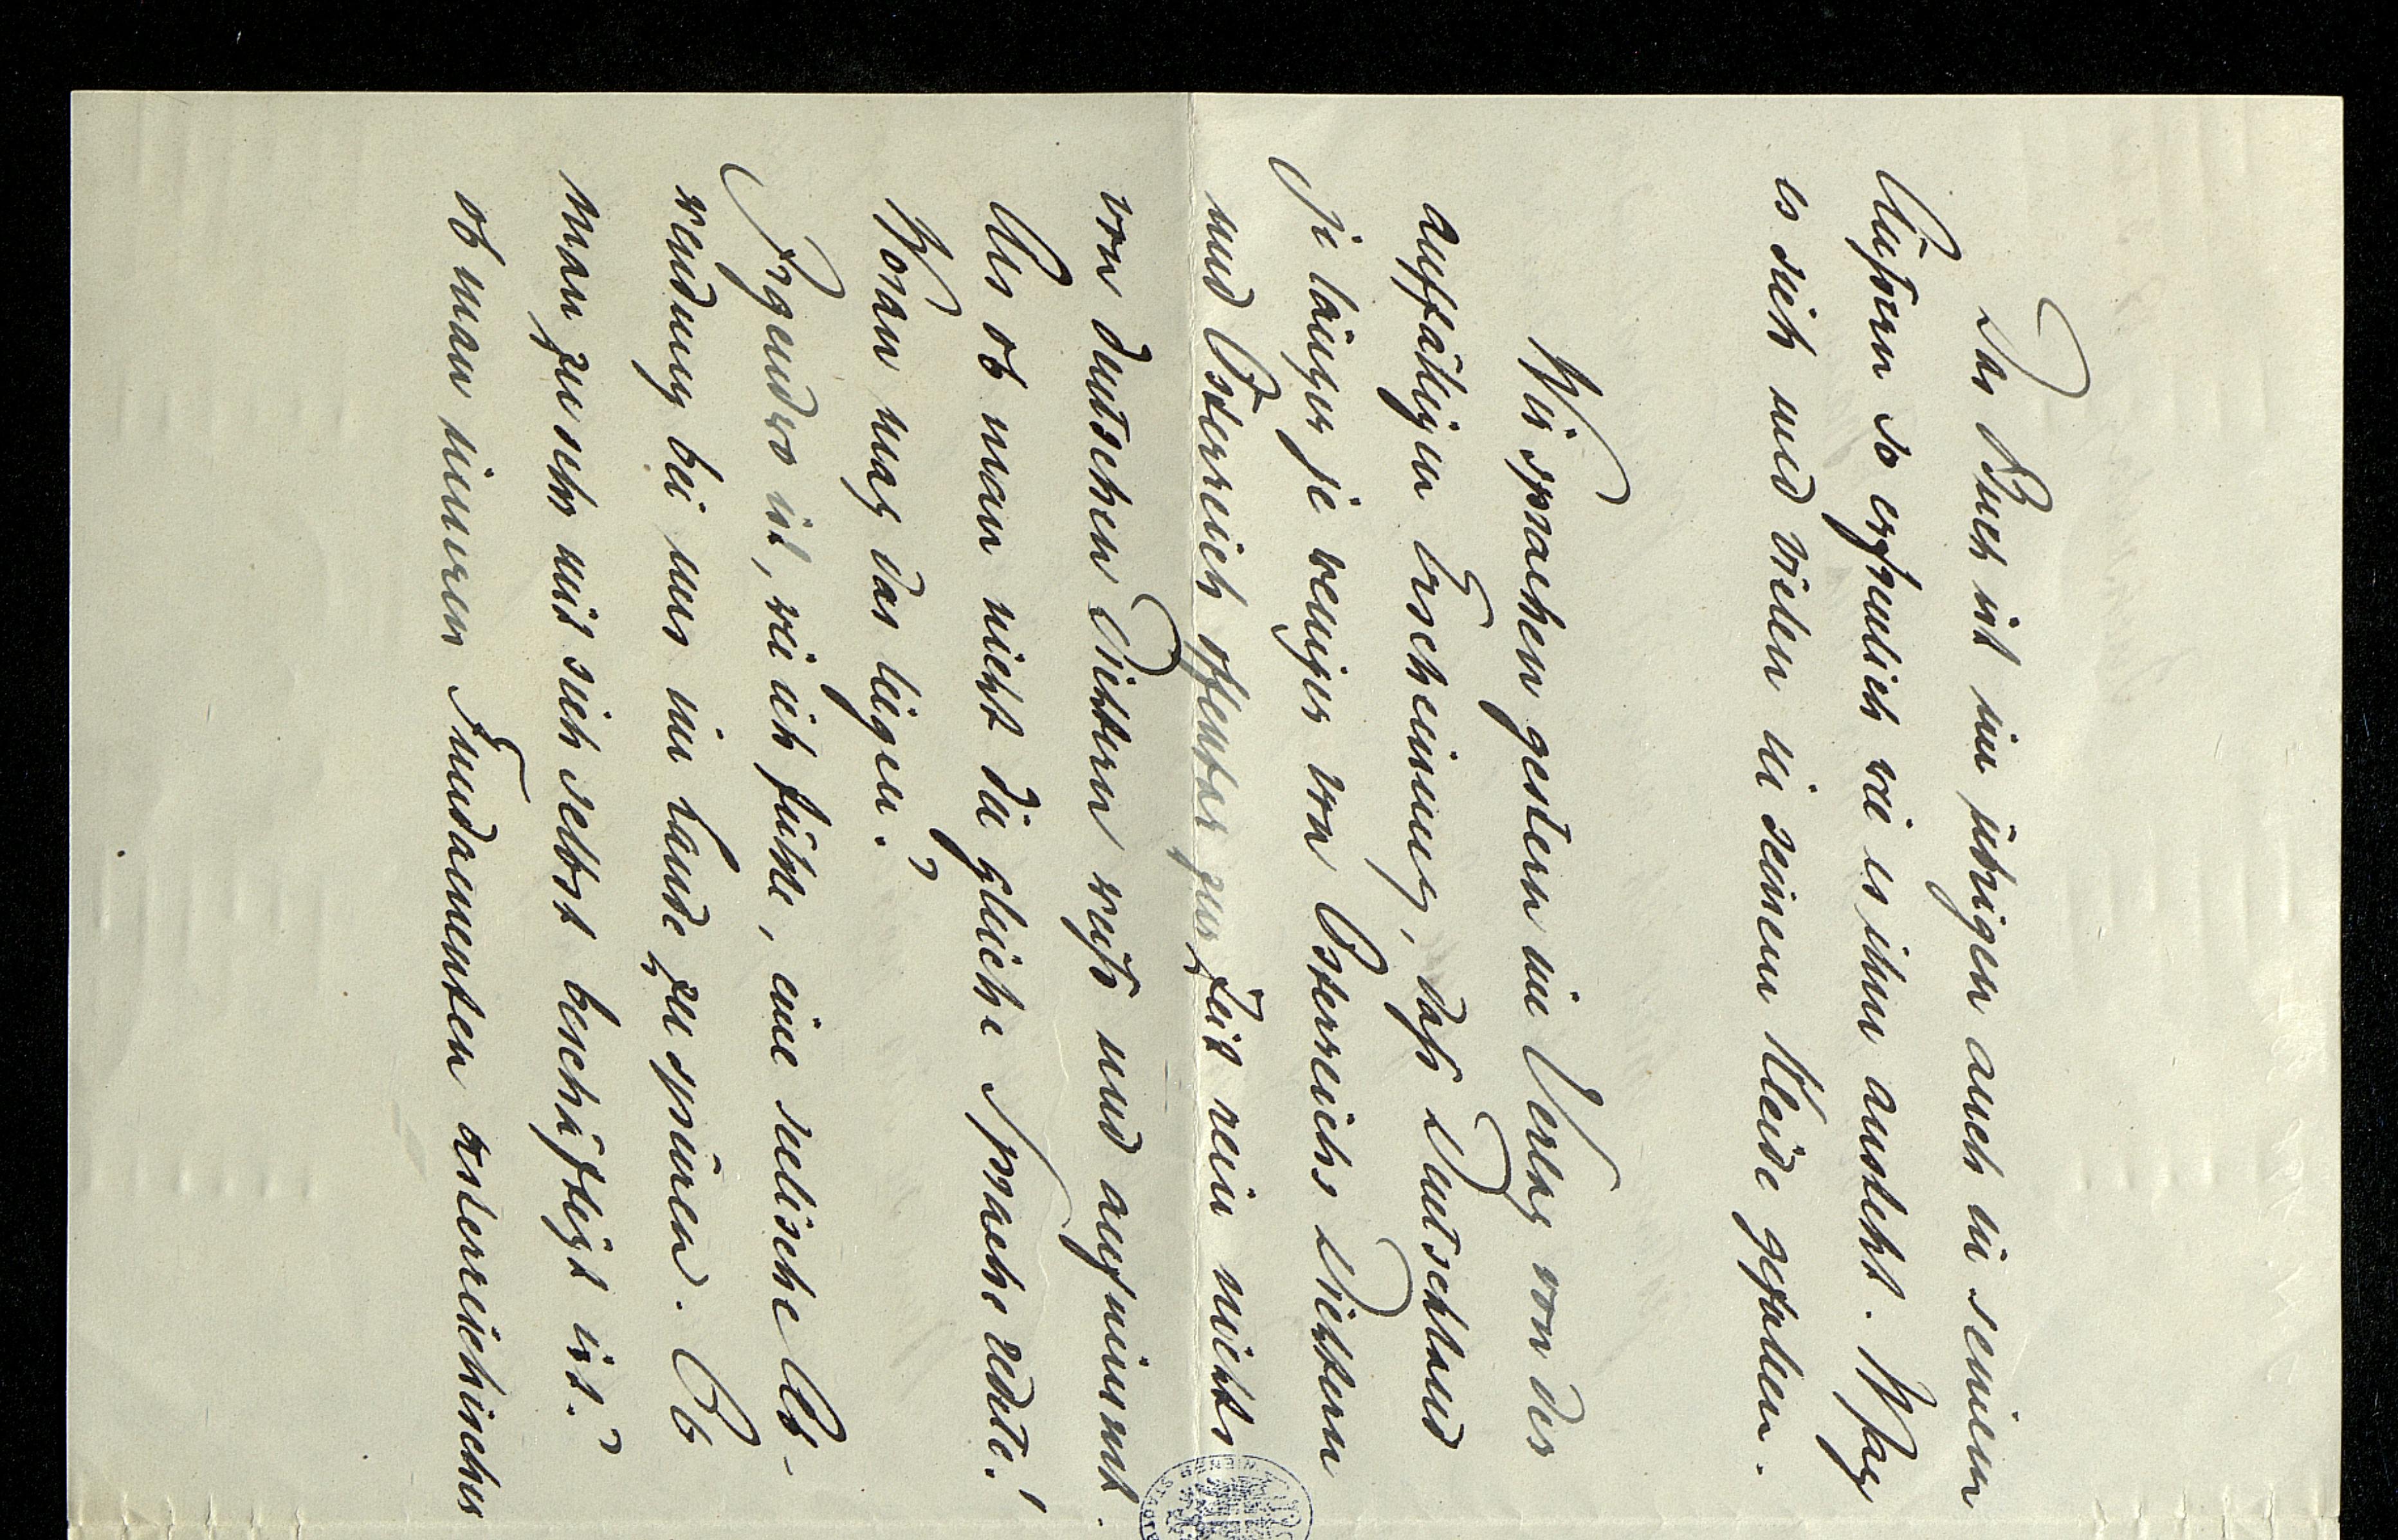 Das Buch ist im übrigen auch in seinem
Äußern so erfreulich wie es ihm ansteht. Mag
es sich und vielen in seinem Kleide gefallen.
Wir sprachen gestern im Verlag von der
auffälligen Erscheinung, daß Deutschland
je länger je weniger von Österreichs Dichtern
und Österreich offenbar zur Zeit rein nichts
von deutschen Dichtern weiß und aufnimmt.
Als ob man nicht die gleiche Sprache redete!
Woran mag das liegen?
Irgendwo ist, wie ich fühle, eine seelische Ab-
wendung bei uns im Lande zu spüren. Ob
man zu sehr mit sich selbst beschäftigt ist?
ob man inneren Fundamenten österreichischer
WIENER STADT